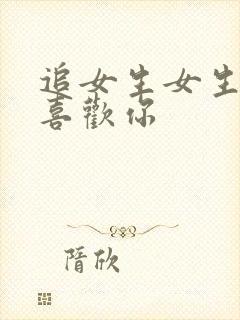 追女生女生
喜歡你
隋欣